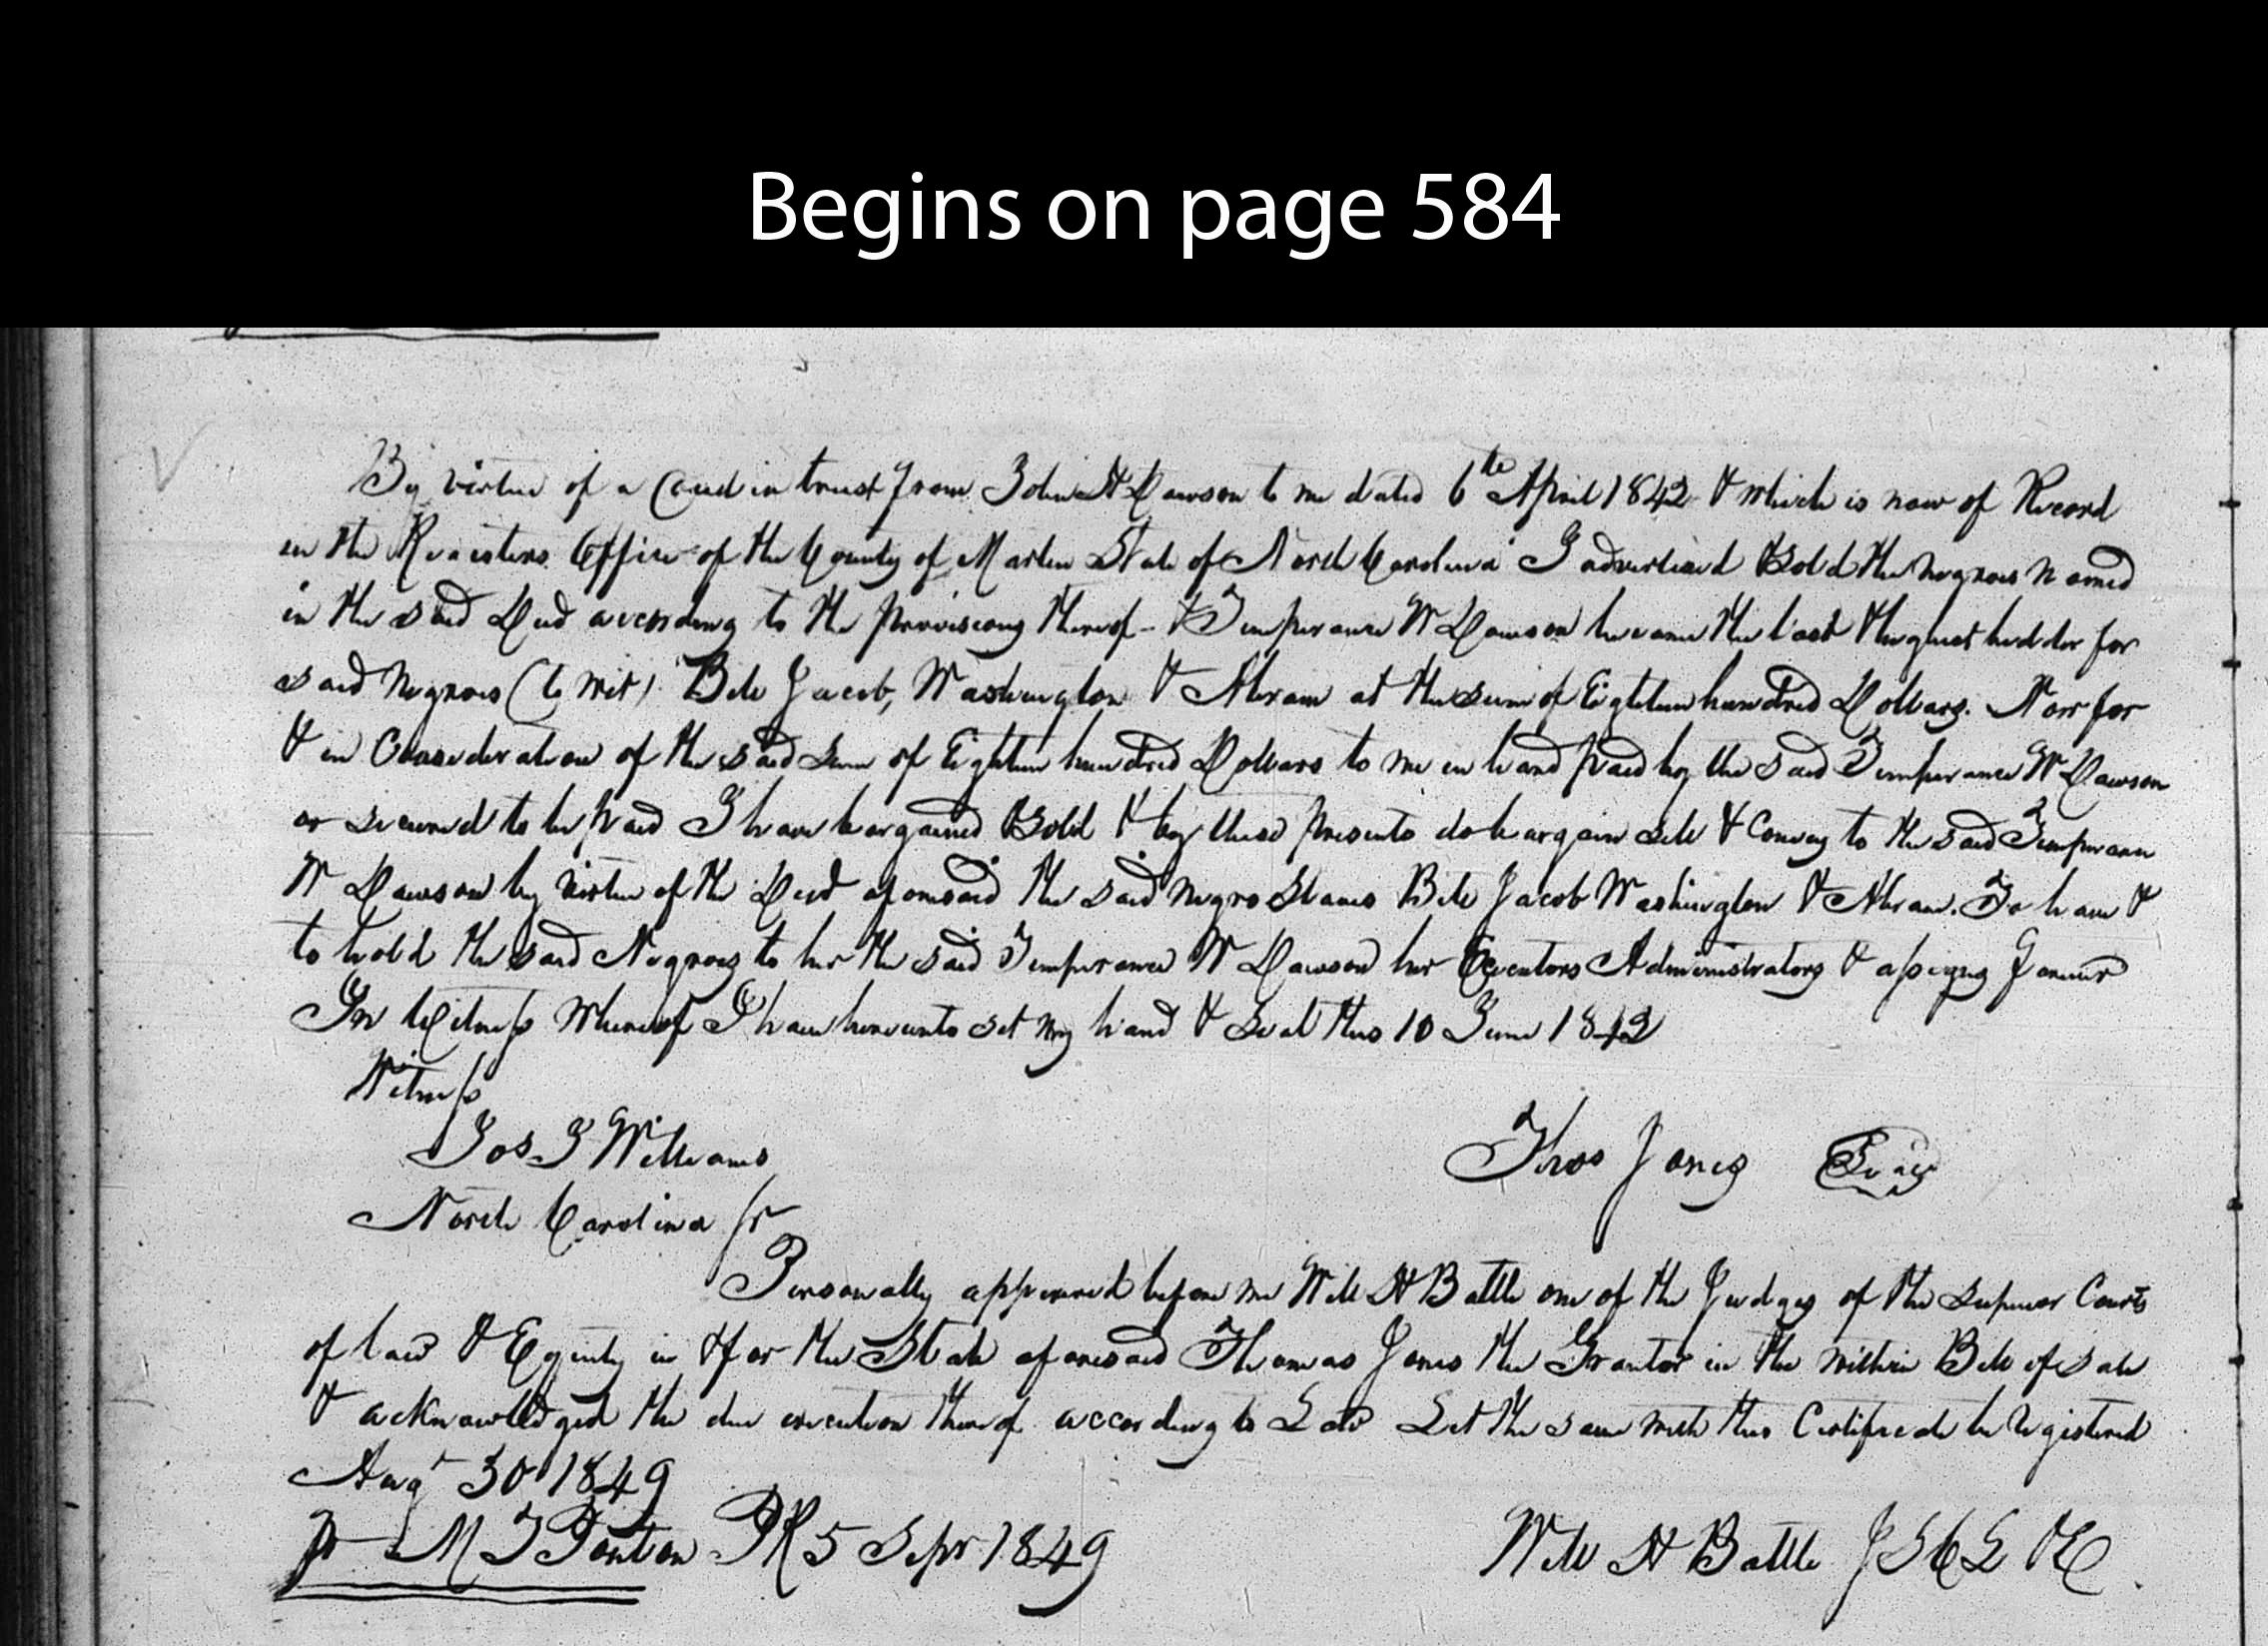 Begins on page 584
By virtue of a Deed in trust from John H Dawson to me dated 6th April 1842 & which is now of Record
in the Registers Office of the County of Martin State of North Carolina I advertised & Sold the Negroes Named
in the said Deed according to the provisions thereof - & Temperance W Dawson became the last & highest bidder for
said Negroes (to wit) Bill Jacob, Washington & Abram at the sum of Eighteen hundred Dollars. Now for
& in Consideration of the said Sum of Eighteen hundred Dollars to me in hand paid by the said Temperance W Dawson
or secured to be paid I have bargained & Sold & by these presents do bargain sell & Convey to the said Temperance
W Dawson by virtue of the Deed aforesaid the said Negro Slaves Bill Jacob Washington & Abram. To have &
to hold the said Negroes to her the said Temperance W Dawson her Executors Administrators & assigns forever
In Witness Whereof I have hereunto set my hand & Seal this 10 June 1842
Witness
Jos J Williams
Thos Jones Seal
North Carolina Ss
Personally appeared before me Will H Battle one of the Judges of the superior Courts
of law & Equity in & for the State aforesaid Thomas Jones the Grantor in the within Bill of sale
& acknowledged the due execution thereof according to Law Let the same with this Certificate be registered
Augt 30 1849
Will H Battle J S C L & E
M T Ponton PR 5 Sepr 1849